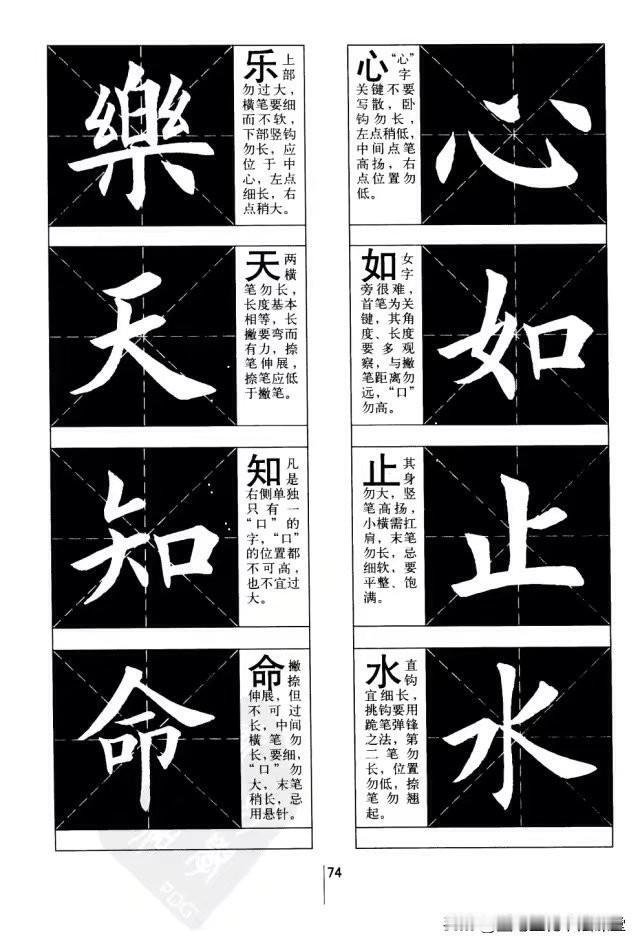 心
心 “心”
字
关键不要
写散，卧
钩勿长，
左点稍低，
中间点笔
高扬，右
点位置勿
低。
如
如 女
字
旁很难，
首笔为关
键，其角
度、长度
要多观
察，与撇
笔距离勿
远，“口”
勿高。
止
止 其
身
勿大，竖
笔高扬，
小横需扛
肩，末笔
勿长，忌
细软，要
平整、饱
满。
水
水 直
钩
宜细长，
挑钩要用
跪笔弹锋
之法，第
二笔勿
长，位置
勿低，捺
笔勿翘
起。
樂
乐 上
部
勿过大，
横笔要细
而不软，
下部竖钩
勿长，应
位于中
心，左点
细长，右
点稍大。
天
天 两
横
笔勿长，
长度基本
相等，长
撇要弯而
有力，捺
笔伸展，
捺笔应低
于撇笔。
知
知 凡
是
右侧单独
只有一
“口”的
字，“口”
的位置都
不可高，
也不宜过
大。
命
命 撇
捺
伸展，但
不可过
长，中间
横笔勿
长，要细，
“口”勿
大，末笔
稍长，忌
用悬针。
74
PDG